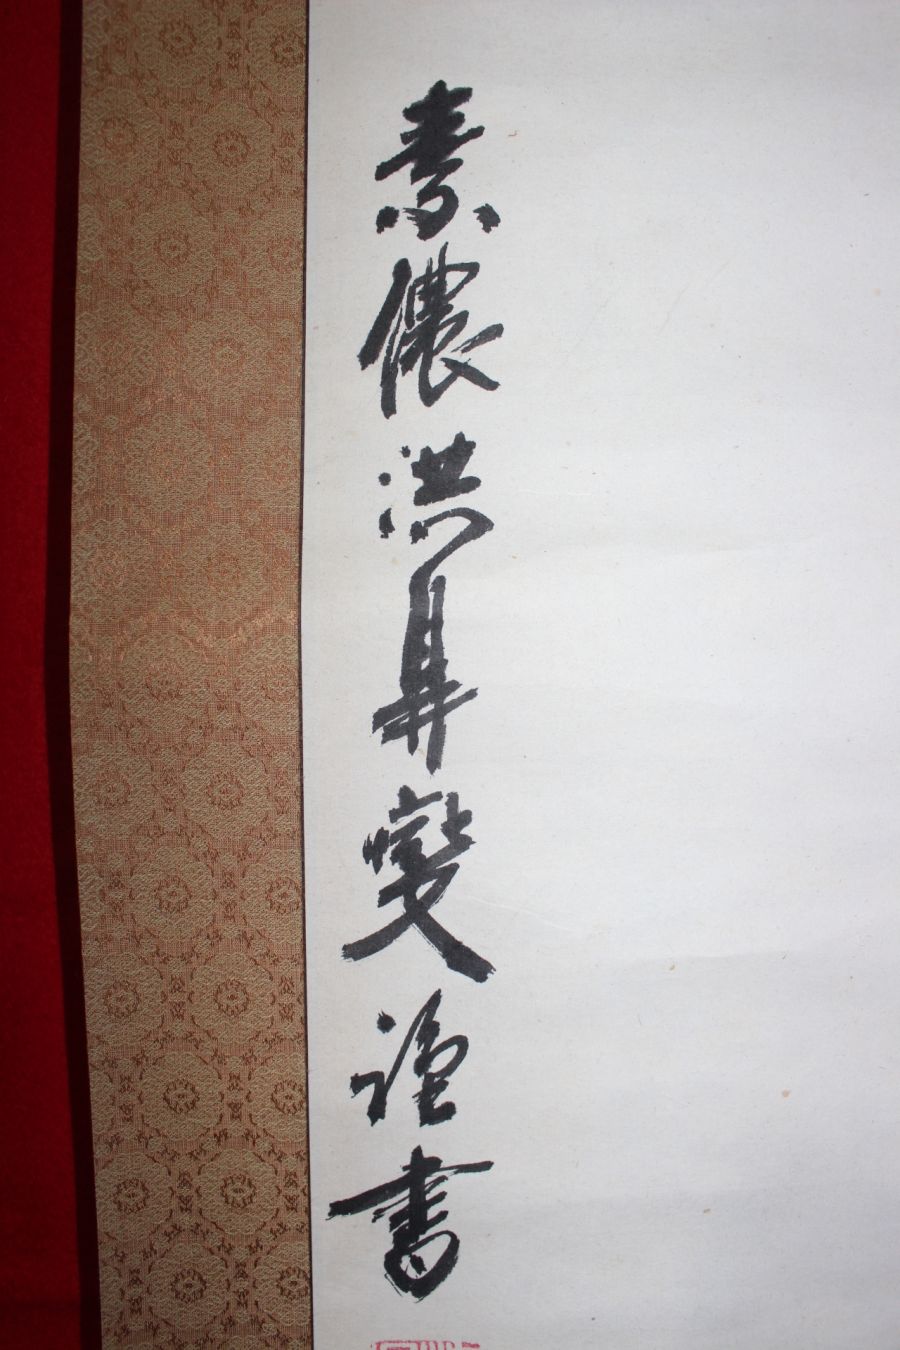 素儂洪昇燮謹書